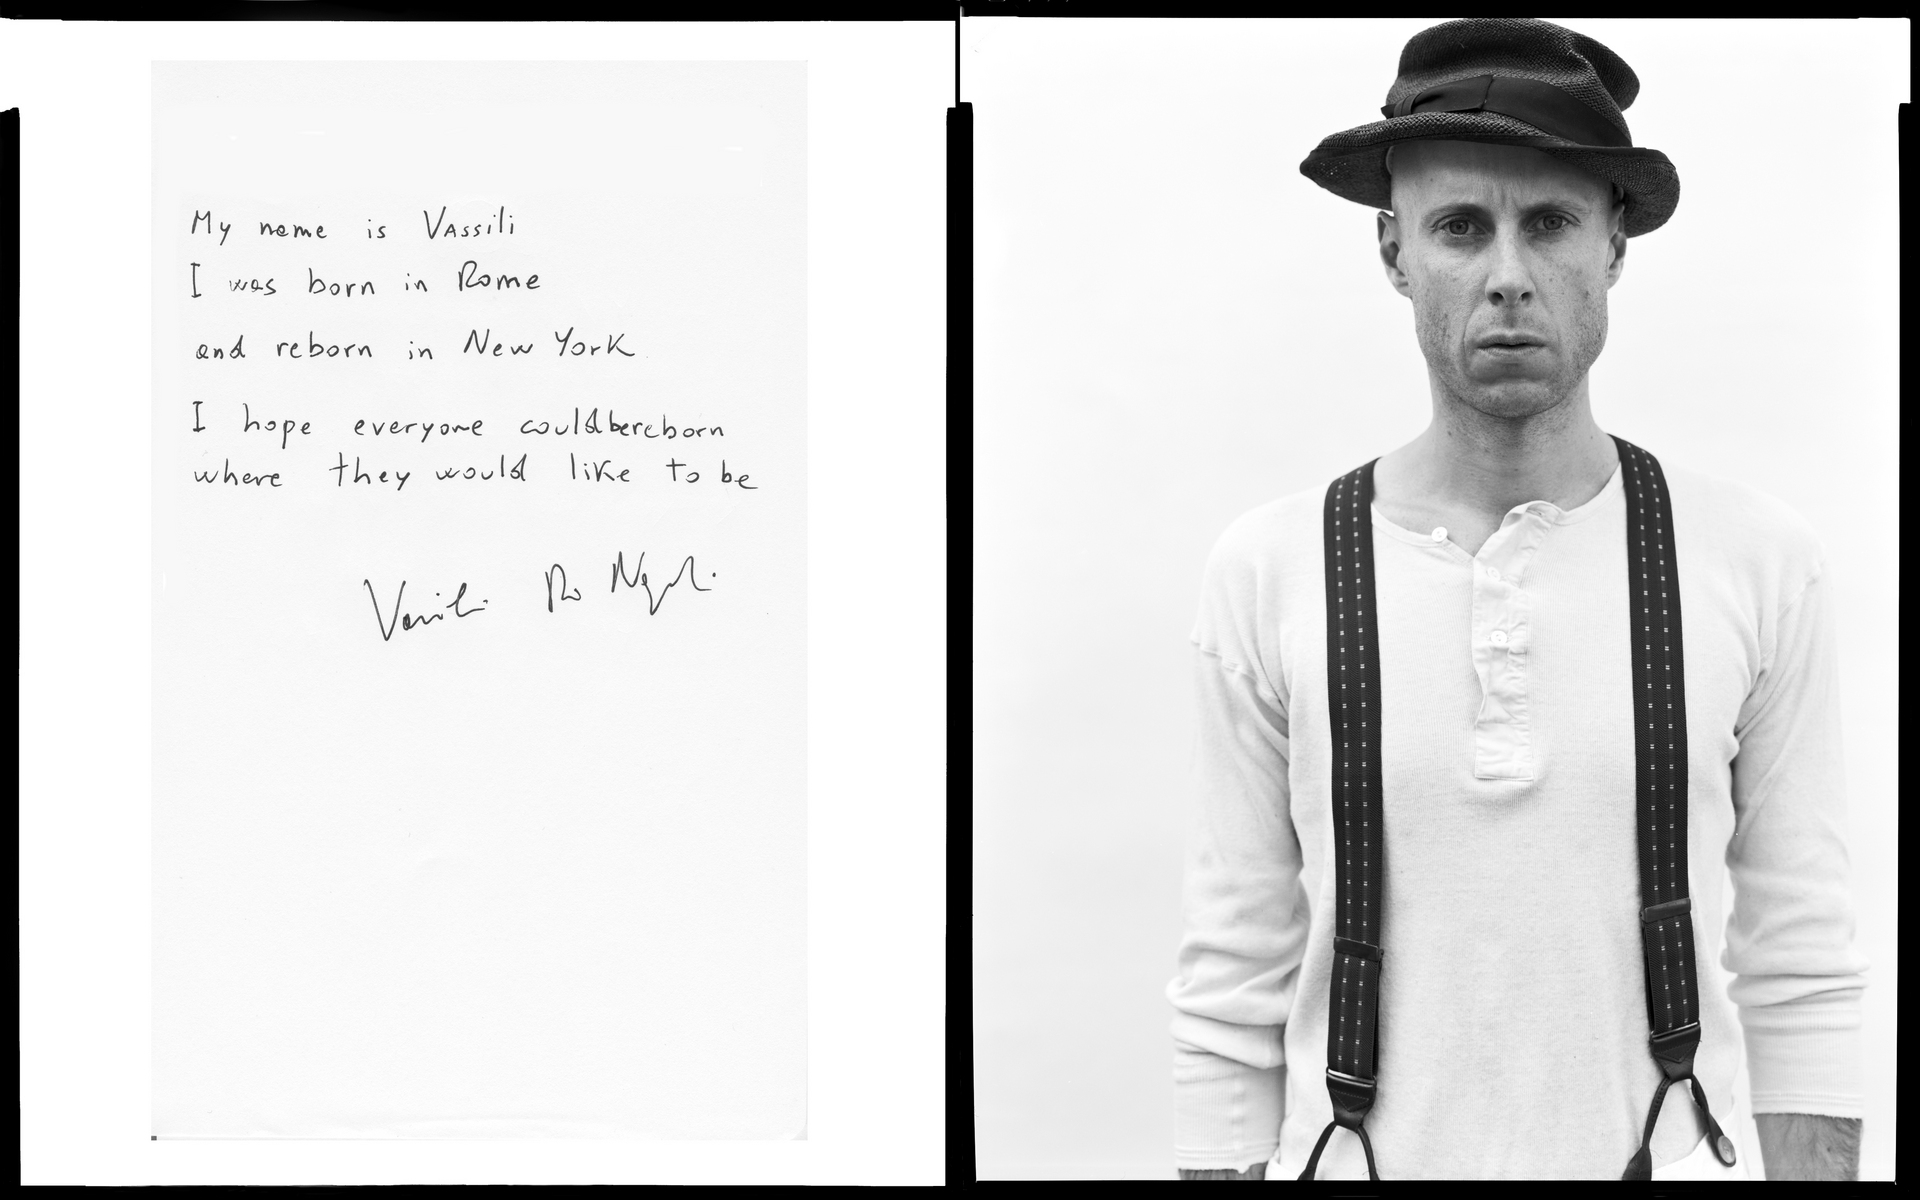 My name is VAssili
I was born in Rome
and reborn in New York
I hope everyone couldbereborn
where they would like to be
Vassili